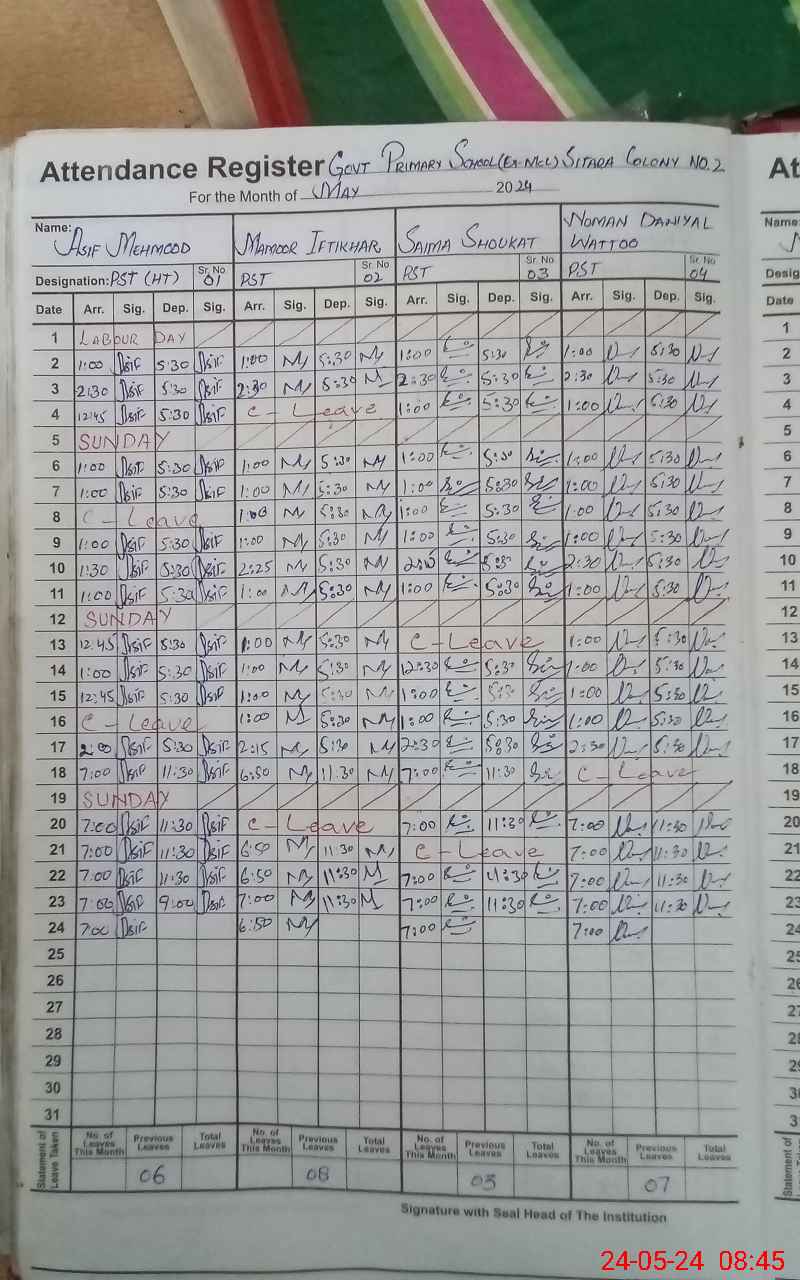 Attendance Register GOVT PRIMARY SCHOOL (EX-MCL) SITARA COLONY NO.2
For the Month of MAY 2024
Name: ASIF MEHMOOD MAMOOR IFTIKHAR SAIMA SHOUKAT NOMAN DANIYAL WATTOO
Designation: PST (HT) Sr. No 01 PST Sr. No 02 PST Sr. No 03 PST Sr. No 04
Date Arr. Sig. Dep. Sig. Arr. Sig. Dep. Sig. Arr. Sig. Dep. Sig. Arr. Sig. Dep. Sig.
1 LABOUR DAY
2 1:00 Asif 5:30 Asif 1:00 5:30 1:00 5:30 1:00 5:30
3 2:30 Asif 5:30 Asif 2:30 5:30 2:30 5:30 2:30 5:30
4 12:45 Asif 5:30 Asif C-Leave 1:00 5:30 1:00 5:30
5 SUNDAY
6 1:00 Asif 5:30 Asif 1:00 5:30 1:00 5:30 1:00 5:30
7 1:00 Asif 5:30 Asif 1:00 5:30 1:00 5:30 1:00 5:30
8 C-Leave 1:00 5:30 1:00 5:30 1:00 5:30
9 1:00 Asif 5:30 Asif 1:00 5:30 1:00 5:30 1:00 5:30
10 1:30 Asif 5:30 Asif 2:25 5:30 5:30 2:30 5:30
11 1:00 Asif 5:30 Asif 1:00 5:30 1:00 5:30 1:00 5:30
12 SUNDAY
13 12:45 Asif 5:30 Asif 1:00 5:30 C-Leave 1:00 5:30
14 1:00 Asif 5:30 Asif 1:00 5:30 12:30 5:30 1:00 5:30
15 12:45 Asif 5:30 Asif 1:00 5:30 1:00 5:30 1:00 5:30
16 C-Leave 1:00 5:30 1:00 5:30 1:00 5:30
17 2:00 Asif 5:30 Asif 2:15 5:30 2:30 5:30 2:30 5:30
18 7:00 Asif 11:30 Asif 6:50 11:30 7:00 11:30 C-Leave
19 SUNDAY
20 7:00 Asif 11:30 Asif C-Leave 7:00 11:30 7:00 11:30
21 7:00 Asif 11:30 Asif 6:50 11:30 C-Leave 7:00 11:30
22 7:00 Asif 11:30 Asif 6:50 11:30 7:00 11:30 7:00 11:30
23 7:00 Asif 9:00 Asif 7:00 11:30 7:00 11:30 7:00 11:30
24 7:00 Asif 6:50 7:00 7:00
25
26
27
28
29
30
31
Statement of Leave Taken No. of Leaves This Month Previous Leaves Total Leaves No. of Leaves This Month Previous Leaves Total Leaves No. of Leaves This Month Previous Leaves Total Leaves No. of Leaves This Month Previous Leaves Total Leaves
06 08 03 07
Signature with Seal Head of The Institution
24-05-24 08:45